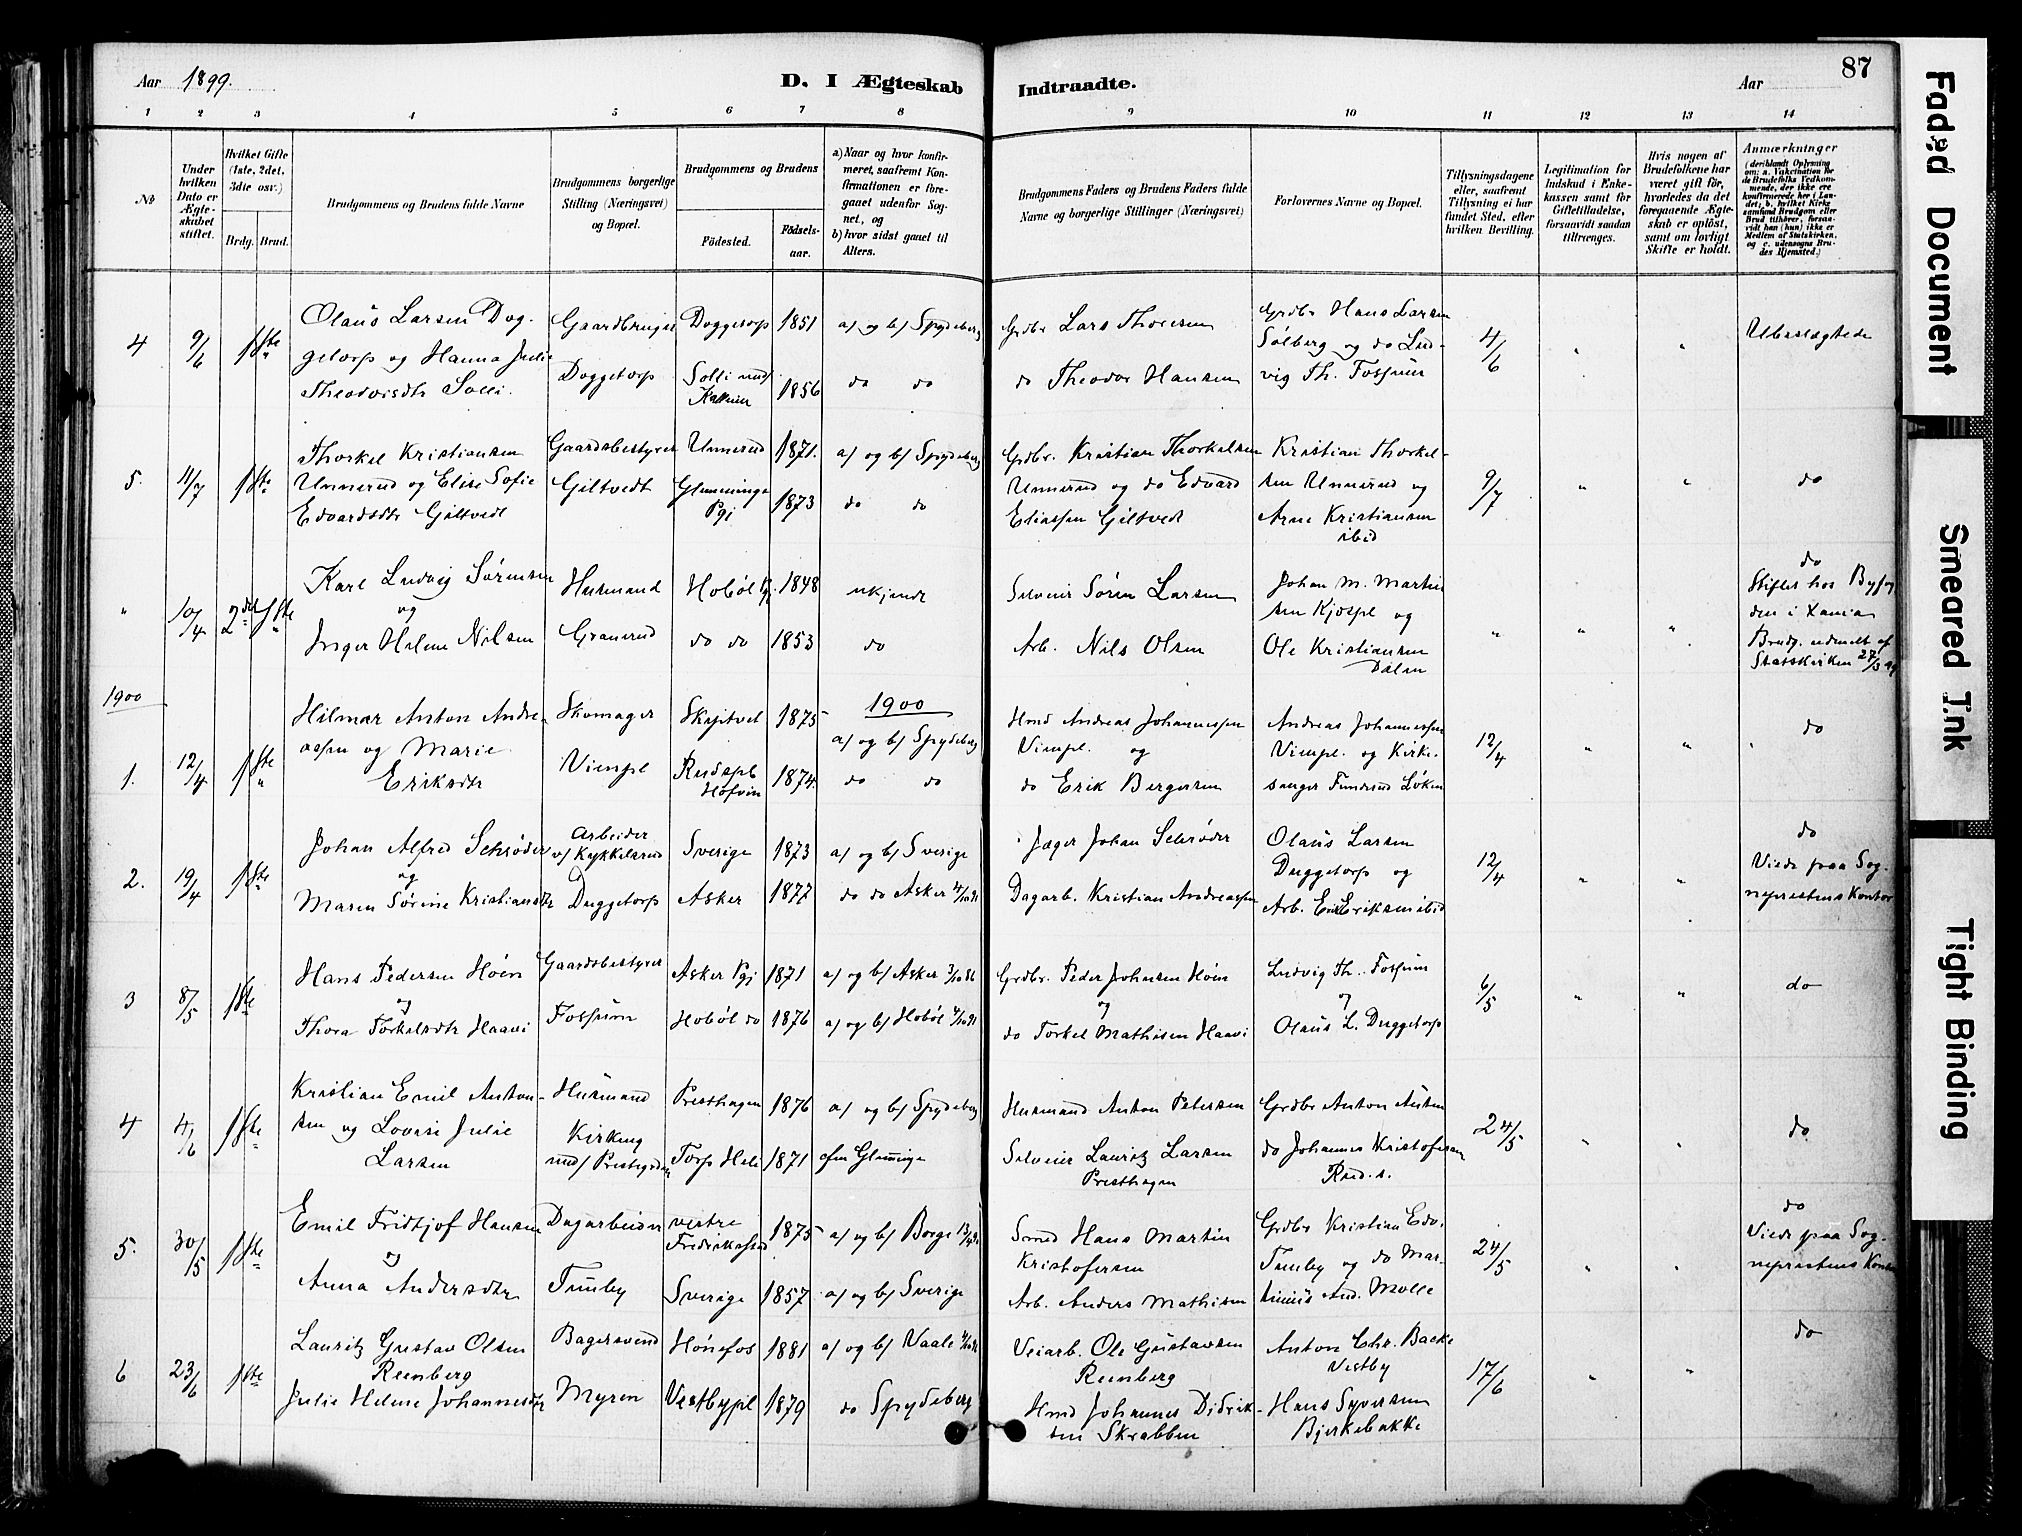 Aar 1899.
D. I Ægteskab Indtraadte.
Aar
87
1 2 3 4 5 6 7 8 9 10 11 12 13 14
No
Under hvilken Dato er Ægteskabet stiftet.
Hvilket Gifte (1ste, 2det, 3die osv.)
Brdg. Brud.
Brudgommens og Brudens fulde Navne
Brudgommens borgerlige Stilling (Næringsvei) og Bopæl.
Brudgommens og Brudens
Fødested.
Fødselsaar.
a) Naar og hvor konfirmeret, saafremt Konfirmationen er foregaaet udenfor Sognet, og
b) hvor sidst gaaet til Alters.
Brudgommens Faders og Brudens Faders fulde Navne og borgerlige Stillinger (Næringsvei)
Forlovernes Navne og Bopæl.
Tillysningsdagene eller, saafremt Tillysning ei har fundet Sted, efter hvilken Bevilling.
Legitimation for Indskud i Enkekassen samt for Giftetilladelse, forsaavidt saadan tiltrænges.
Hvis nogen af Brudefolkene har været gift før, hvorledes da det foregaaende Ægteskab er opløst, samt om lovligt Skifte er holdt.
Anmærkninger
(deriblandt Oplysning om: a. Vakcination for de Brudefolks Vedkommende, der ikke ere konfirmerede her i Landet; b. hvilket Kirkesamfund Brudgom eller Brud tilhører, forsaavidt han (hun) ikke er Medlem af Statskirken, og c. udensogns Brudes Hjemsted.)
4 9/6 1ste Olaus Larsen Doggetorp og Hanna Julie Theodorsdtr Solli.
Gaardbruger Doggetorp
Doggetorp 1851 a) og b) Spydeberg
Solli 1856 do do
Grdbr Lars Thoresen
do Theodor Hansen
Grdbr Hans Larsen Solberg og do Ludvig Th. Fossum
4/6 " " Ubeslægtede
5. 11/7 1ste Thorkel Kristiansen Unnerud og Elise Sofie Edvardsdtr Giltvedt
Gaardsbestyrer Giltvedt
Unnerud 1871. a) og b) Spydeberg
Glemminge Pgj 1873 do do
Grdbr. Kristian Thorkelsen Unnerud og do Edvard Eliassen Giltvedt
Kristian Thorkelsen Unnerud og Arne Kristiansen ibid
9/7 " " do
" 10/4 2det 1ste Karl Ludvig Sørensen og Inger Helene Nilsen
Husmand Granerud
Hobøl Pgj. 1848 ukjendt
do do 1853 do
Selveier Søren Larsen
Arb. Nils Olsen
Johan M. Martinsen Kjospl og Ole Kristiansen Dalen
" " " do
Stiftet hos Byfogden i Xania
Brudg. udmeldt af Statskirken 27/3 99
1900
1900
1. 12/4 1ste Hilmar Anton Andreassen og Marie Eriksdtr
Skomager Vimpl
Skjitvet 1875 a) og b) Spydeberg
Rudspl Hofvin 1874. do do
Hmd Andreas Johannessen Vimpl. og
do Erik Bergersen
Andreas Johannessen Vimpl. og Kirkesanger Funderud Løken
12/4 " " do
2. 19/4 1ste Johan Alfred Schrøder og Maren Sørine Kristiansdtr
Arbeider v/ Kykkelsrud Duggetorp
Sverige 1873 a) og b) Sverige
Asker 1877 do do Asker 4/10 91
Jæger Johan Schrøder
Dagarb. Kristian Andreassen
Olaus Larsen Duggetorp og Arb. Eriksen ibid
12/4 " " do
Viede paa Sognepræstens Kontor
3 8/5 1ste Hans Pedersen Høen og Thora Torkelsdtr Haavi
Gaardsbestyrer Fossum
Asker Pgj 1871 a) og b) Asker 3/10 86
Hobøl do 1876 a) og b) Hobøl 4/10 91
Grdbr. Peder Johnsen Høen og
do Torkel Mathisen Haavi
Ludvig Th. Fossum og Olaus L. Duggetorp
6/5 " " do
4 4/6 1ste Kristian Emil Antonsen og Lovise Julie Larsen
Husmand Kirkeng und/ Prestgrden
Presthagen 1876 a) og b) Spydeberg
Torp Heli 1871 Glemminge
Husmand Anton Petersen
Selveier Lauritz Larsen Presthagen
Grdbr Anton Austen
do Johannes Kristofersen Rud. s.
24/5 " " do
5. 30/5 1ste Emil Fridtjof Hansen og Anna Andersdtr
Dagarbeider Tunby
vestre Fredrikstad 1875 a) og b) Borge
Sverige 1857 a) og b) Sverige
Smed Hans Martin Kristofersen
Arb. Anders Mathisen
Grdbr Kristian Edv. Tunby og do Martinius And. Molle
24/5 " " do
Viede paa Sognepræstens Kontor
6 23/6 1ste Lauritz Gustav Olsen Reenberg
Julie Helene Johannesdtr
Bagersvend Myren
Hønefos 1881 a) og b) Vaale
Vestbypl 1879 do Spydeberg
Veiarb. Ole Gustavsen Reenberg
Hmd Johannes Didriksen Skrabben
Anton Chr. Bache Vestby
Hans Syversen Bjerkebakke
17/6 " " do
Faded Document
Smeared Ink
Tight Binding